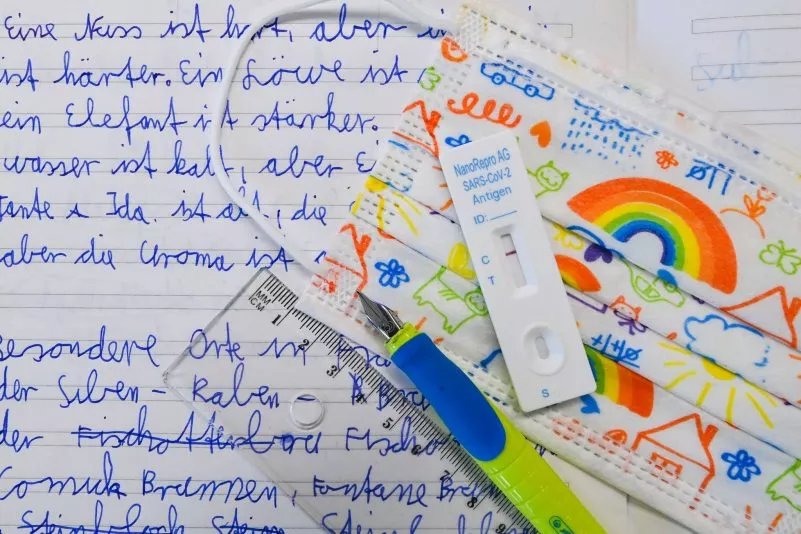 Eine Nuss ist hart, aber
ist härter. Ein Löwe ist
ein Elefant ist stärker.
wasser ist kalt, aber
Tante Ida ist alt, die
aber die Uroma ist
Besondere Orte in
der Silben - Raben -
der Fischotter
Comick Brunnen, Fontane
Steinbock
NanoRepro AG
SARS-CoV-2
Antigen
ID:
C
T
S
MM
CM
1
2
3
4
5
6
7
8
9